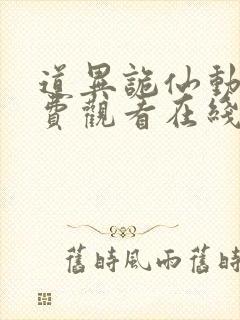 道異詭仙動
費觀看在綫
舊時風雨舊時